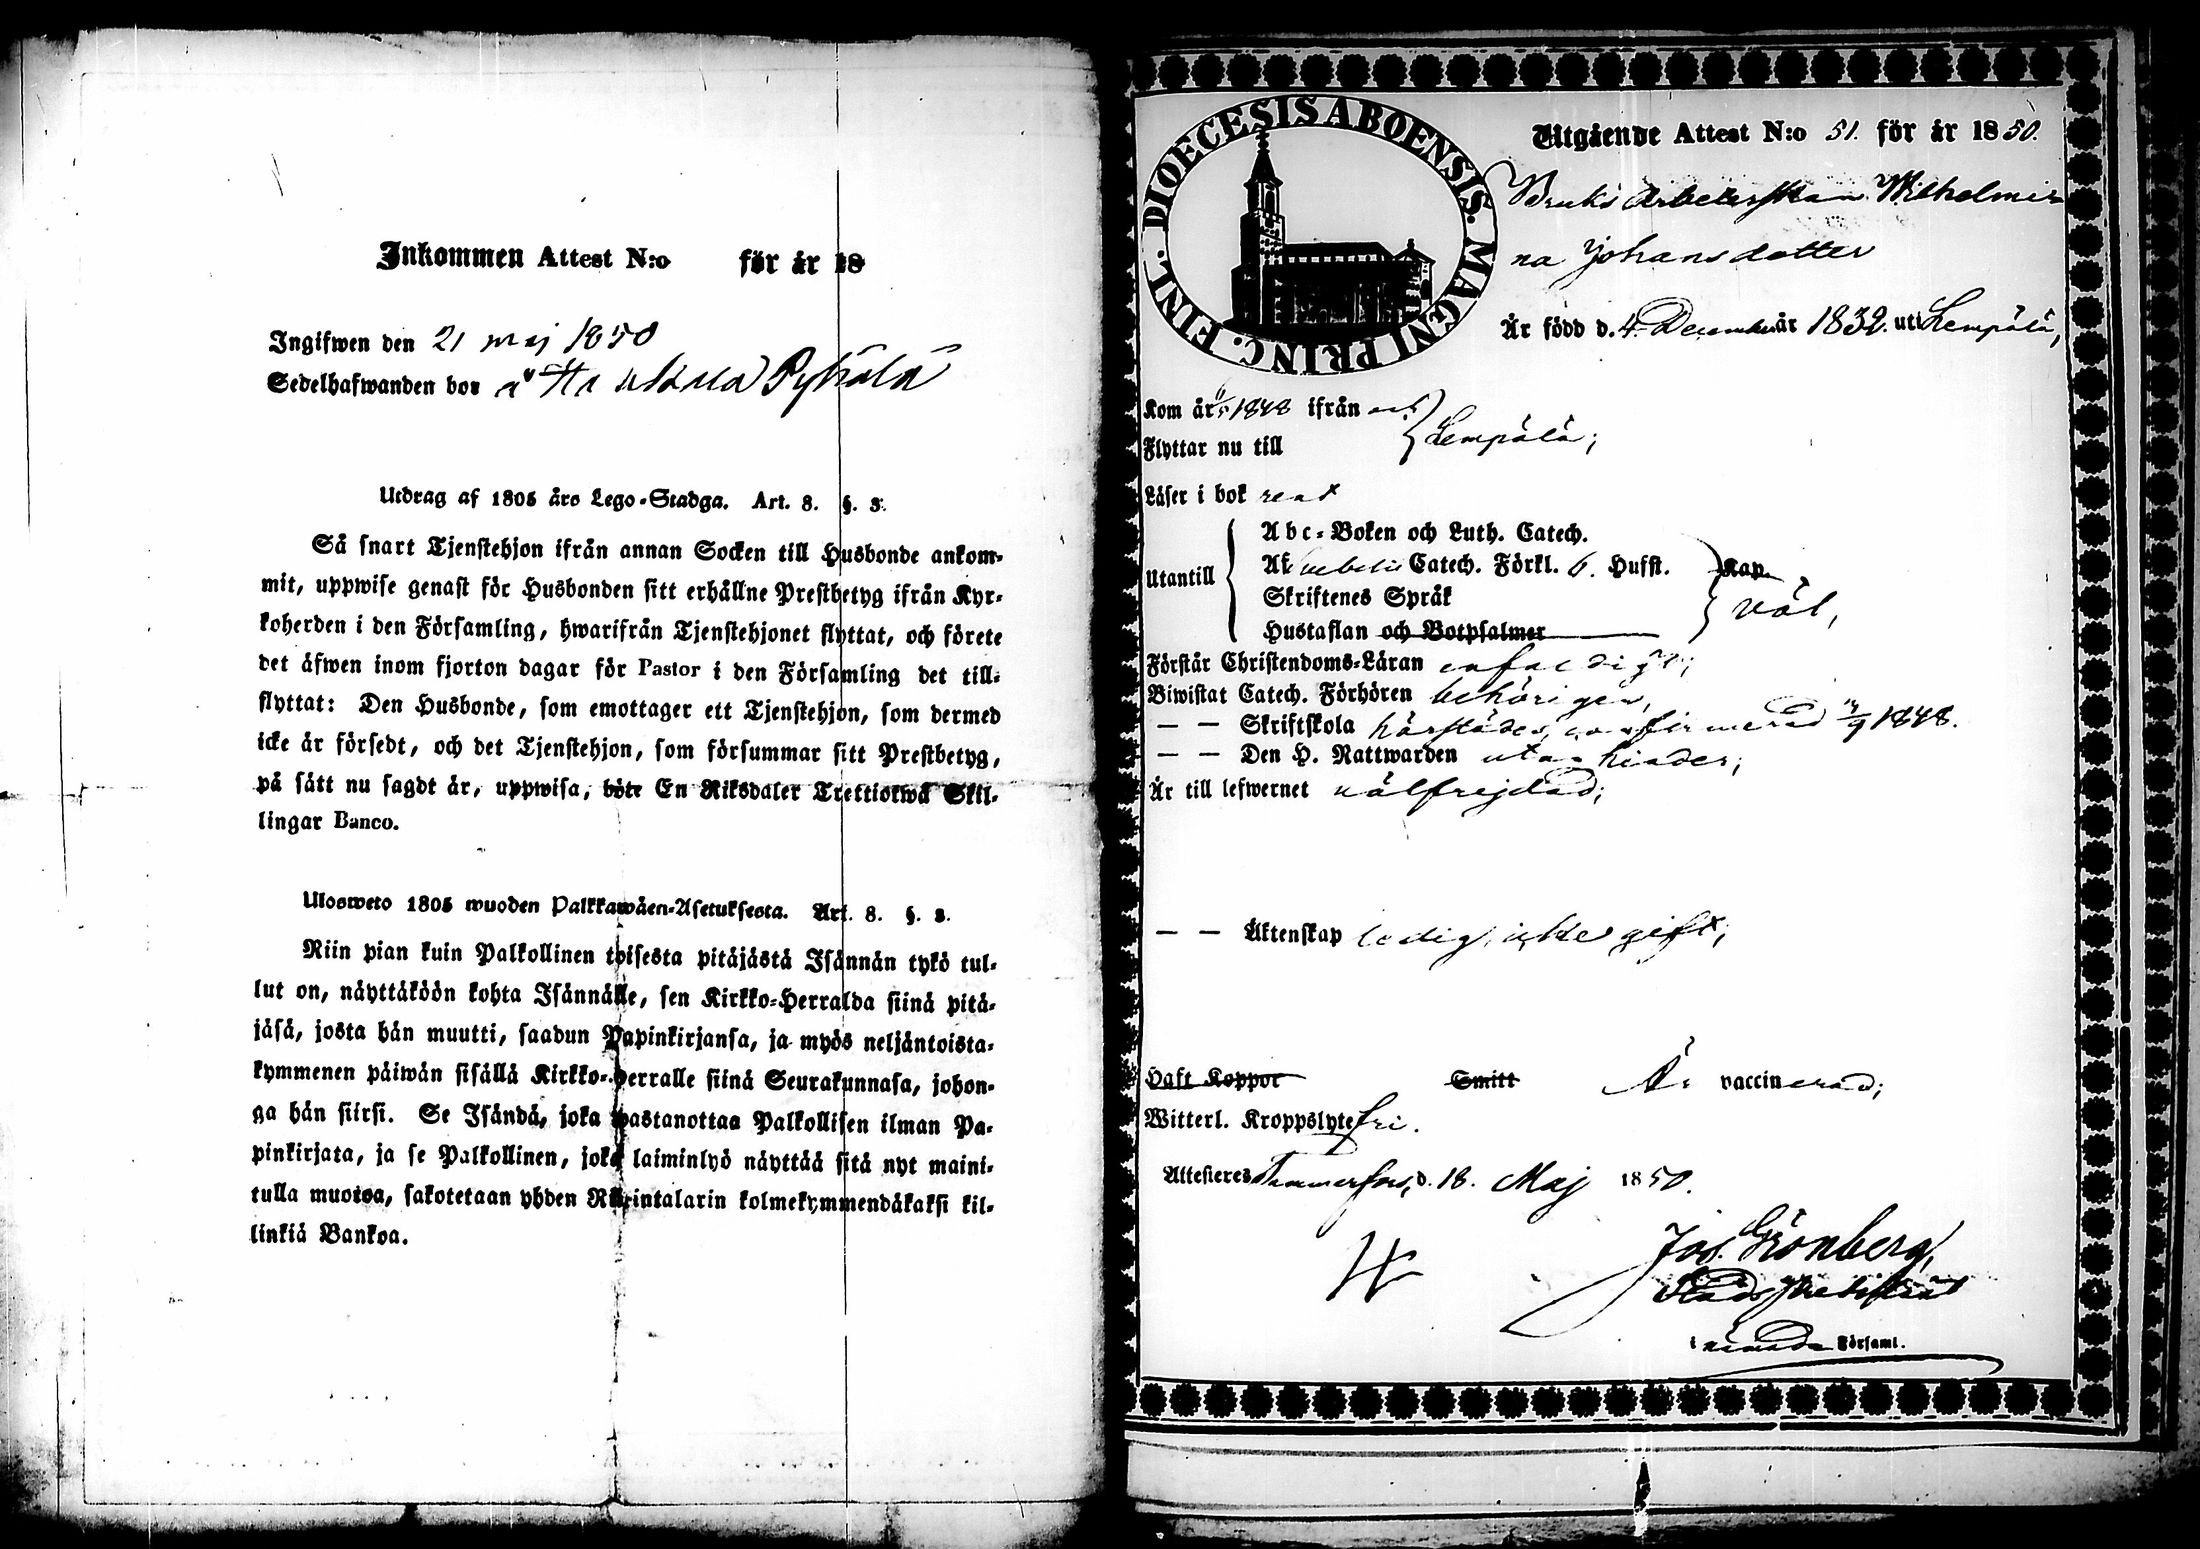 Inkommen Attest N:o för år 18
Ingifwen den 21 maj 1850
Sedelhafwanden bor å Pyhälä
Utdrag af 1805 års Lego-Stadga. Art. 8. §. 3.
Så snart Tjenstehjon ifrån annan Socken till Husbonde ankom-
mit, uppwise genast för Husbonden sitt erhållne Prestbetyg ifrån Kyr-
koherden i den Församling, hwarifrån Tjenstehjonet flyttat, och förete
det äfwen inom fjorton dagar för Pastor i den Församling det till-
flyttat: Den Husbonde, som emottager ett Tjenstehjon, som dermed
icke är försedt, och det Tjenstehjon, som försummar sitt Prestbetyg,
på sätt nu sagdt är, uppwisa, böte En Riksdaler Trettiotwå Skil-
lingar Banco.
Ulosweto 1805 wuoden Palkkawäen-Asetuksesta. Art. 8. §. 3.
Niin pian kuin Palkollinen toisesta pitäjästä Isännän tykö tul-
lut on, näyttäköön kohta Isännälle, sen Kirkko-Herralda siinä pitä-
jäsä, josta hän muutti, saadun Papinkirjansa, ja myös neljäntoista-
kymmenen päiwän sisällä Kirkko-Herralle siinä Seurakunnasa, johon-
ga hän siirsi. Se Isändä, joka wastanottaa Palkollisen ilman Pa-
pinkirjata, ja se Palkollinen, joka laiminlyö näyttää sitä nyt maini-
tulla muotoa, sakotetaan yhden Riikintalarin kolmekymmendäkaksi kil-
linkiä Bankoa.
DIOECESIS ABOENSIS. MAGNI PRINC. FINL.
Utgående Attest N:o 51. för år 1850.
Bruks Arbeterskan Wilhelmi
na Johansdotter
Är född d. 4 December år 1832. uti Lempälä,
Kom år 1848 ifrån och
Flyttar nu till Lempälä;
Läser i bok rent
Utantill
Abc-Boken och Luth. Catech.
Catech. Förkl. 6. Hufst. Kap.
Skriftenes Språk väl,
Hustaflan och Botpsalmer
Förstår Christendoms-Läran enfaldigt;
Biwistat Catech. Förhören behörigen,
— — Skriftskola härstädes, confirmerad /9 1848.
— — Den H. Nattwarden utan hinder;
Är till lefwernet wälfrejdad;
— — Äktenskap ledig, icke gift;
Haft Koppor Smitt Är vaccinerad;
Witterl. Kroppslyte fri.
Attesteres Tammerfors, d. 18. Maj 1850.
Jos. Grönberg,
Stads Predikant
i nämnda Församl.